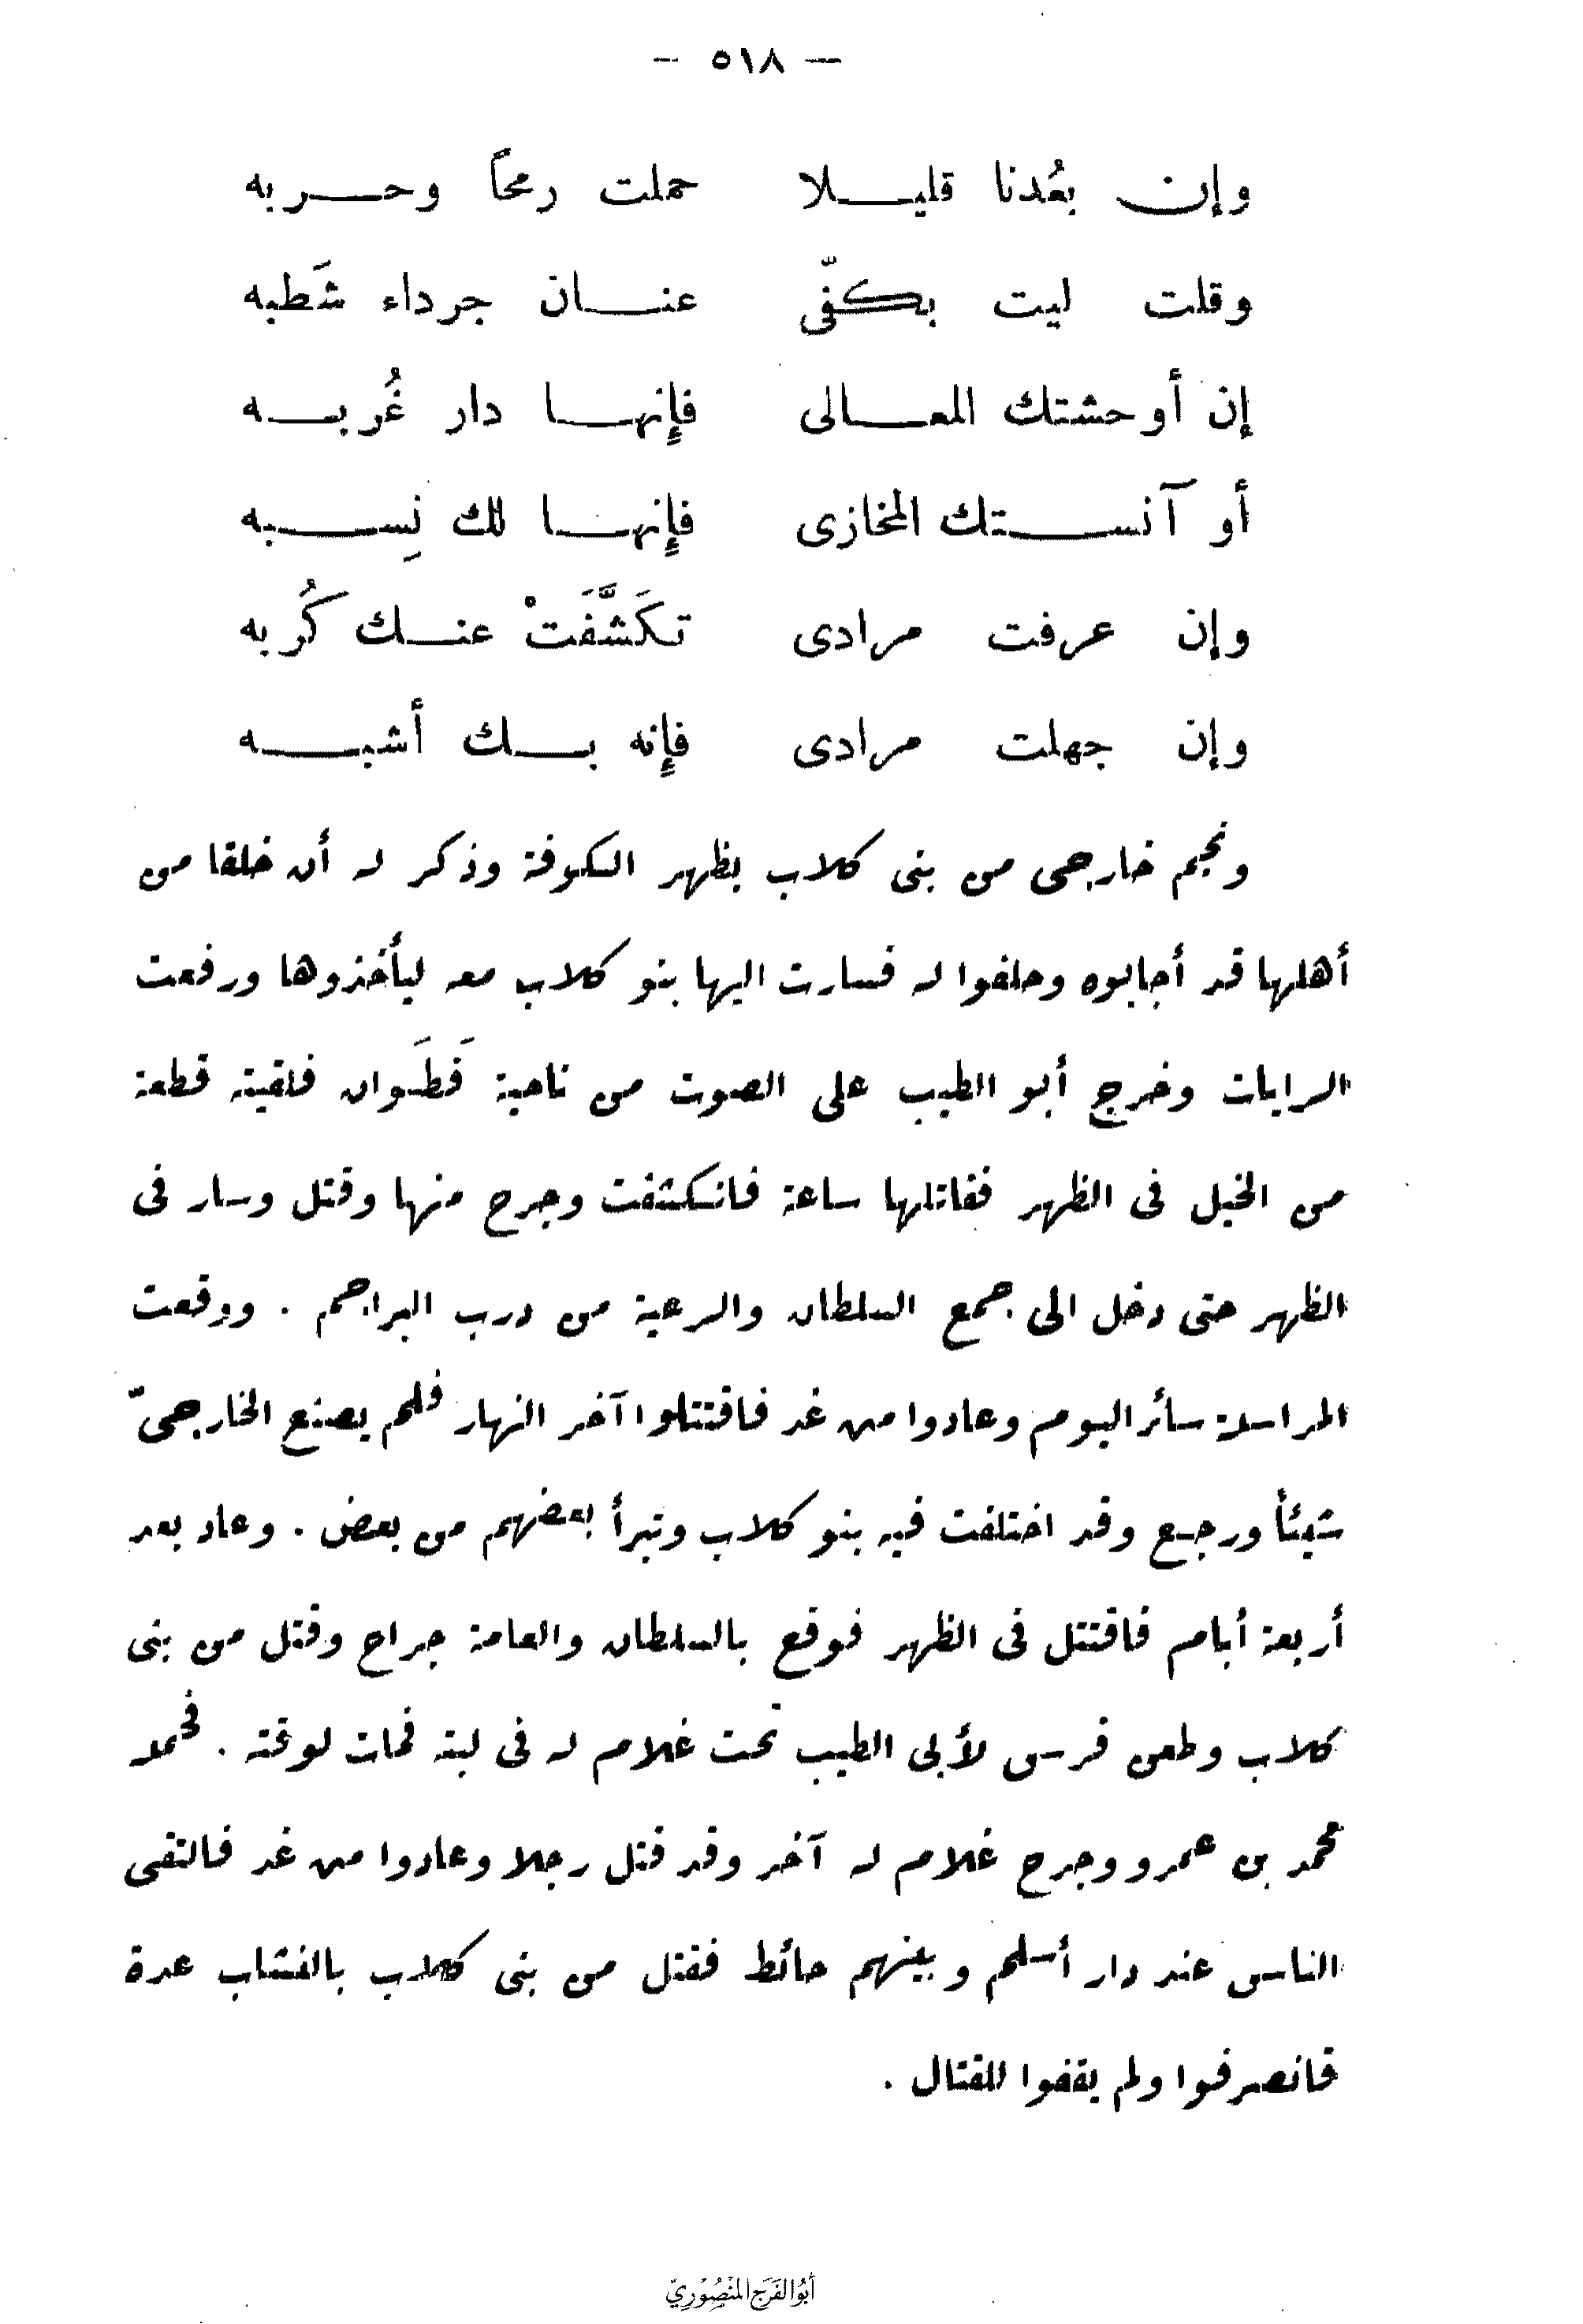 — ٥١٨ —
وإن بعُدنا قليلا حملت رمحاً وحربه
وقلت ليت بكفّى عنان جرداء شَطبه
إن أوحشتك المعالى فإنها دار غُربه
أو آنستك المخازى فإنها لك نِسبه
وإن عرفت مرادى تكَشَّفَتْ عنك كُربه
وإن جهلت مرادى فإنه بك أشبه
ونجم خارجى من بنى كلاب بظهر الكوفة وذكر له أن خلقا من
أهلها قد أجابوه وحلفوا له فسارت اليها بنو كلاب معه ليأخذوها ورفعت
الرايات وخرج أبو الطيب على الصوت من ناحية قَطَوان فلقيته قطعة
من الخيل فى الظهر فقاتلها ساعة فانكشفت وجرح منها وقتل وسار فى
الظهر حتى دخل الى جمع السلطان والرعية من درب البراجم . ووقعت
المراسلة سائر اليوم وعادوا من غد فاقتتلوا آخر النهار فلم يصنع الخارجىّ
شيئاً ورجع وقد اختلفت فيه بنو كلاب وتبرأ بعضهم من بعض . وعاد بعد
أربعة أيام فاقتتل فى الظهر فوقع بالسلطان والعامة جراح وقتل من بنى
كلاب وطعن فرس لأبى الطيب تحت غلام له فى لبته فمات لوقته . فحمله
محمد بن عمرو وجرح غلام له آخر وقد قتل رجلا وعادوا من غد فالتقى
الناس عند دار أسلم وبينهم حائط فقتل من بنى كلاب بالنشاب عدة
فانصرفوا ولم يقفوا للقتال .
أبُو الفَرَج المَنْصُوْرِيّ